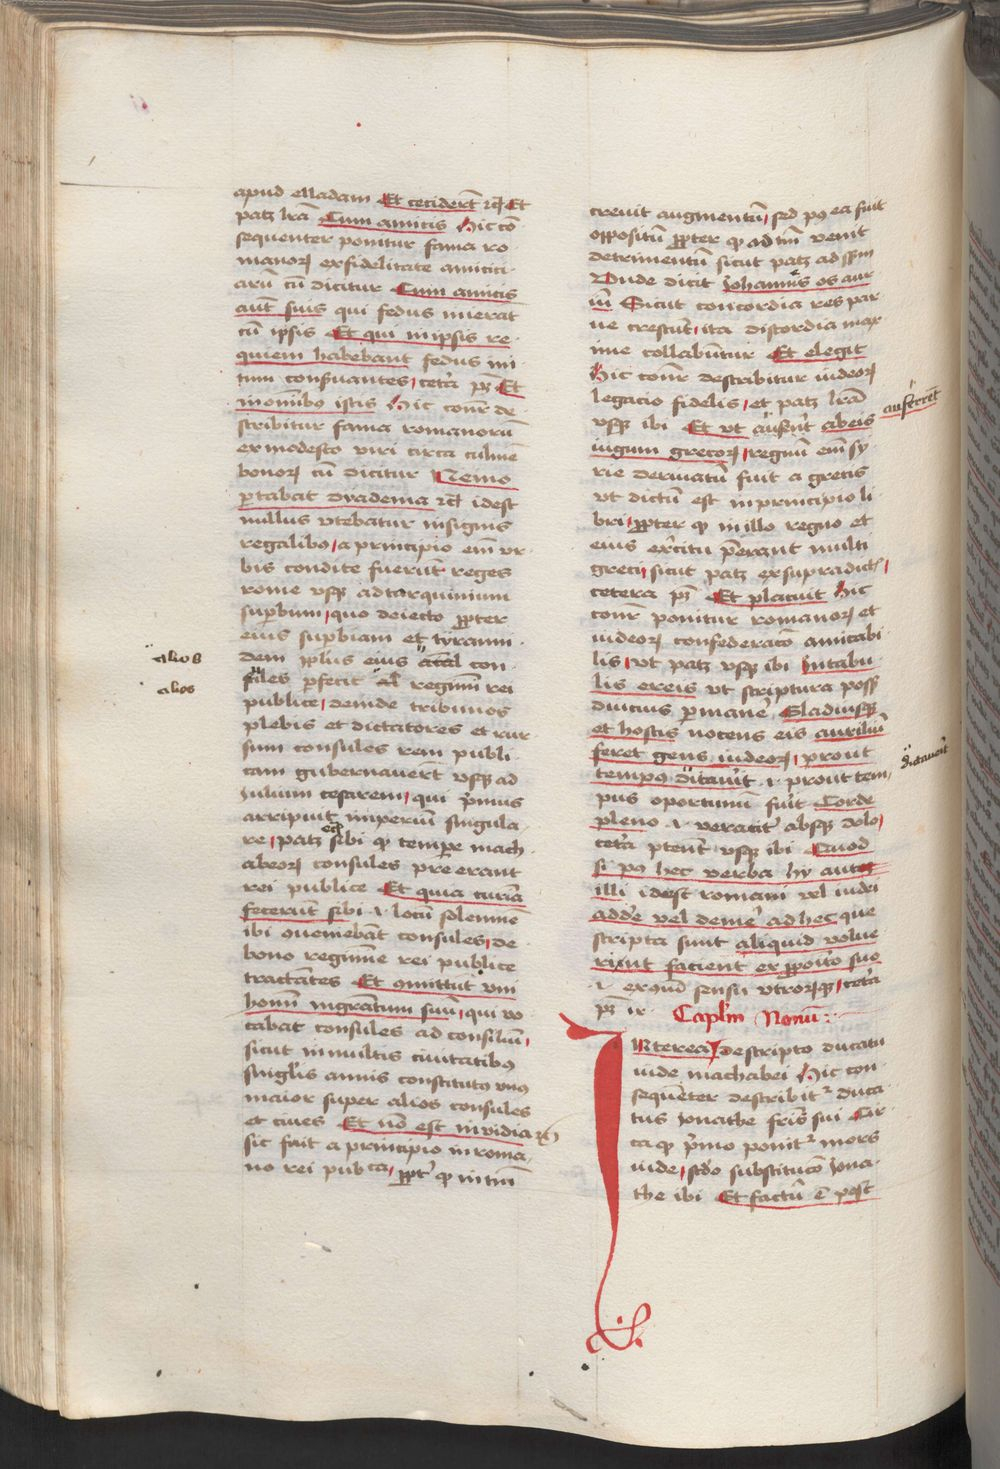 apud elladam Et ceciderūt rc̄ Et
patz lr̄a Cum amicis Hic cō
sequenter ponitur fama ro
manorꝫ ex fidelitate amicici
arū cū dicitur Cum amicis
aūt suis qui fedus inierāt
cū ipsis Et qui in ipsis re
quiem habebant fedus ini
tum conſuantes cetā pꝫ Et
nominibꝰ istis Hic conr̄ de
scribitur fama romanorū
ex modesto viri circa culmē
bonorꝫ cū dicitur Nemo
portabat dyadema rc̄ idest
nullus vtebatur insignis
regalibꝰ a principio em̄ vr
bis condite fuerūt reges
rome vsqꝫ ad tarquinium
suꝑbum quo deiecto ꝓpter
eius suꝑbiam et tyranni
dem ipius eius con
sules ꝑfecit regimī rei
publice deinde tribunos
plebis et dictatores et rur
sum consules rem publi
cam gubernauerūt vsqꝫ ad
Julium cesarem qui p̄mus
arripuit imperiū singula
re patz sibi qꝫ tempe mach
abeorꝫ consules pre erant
rei publice Et quia curiā
fecerūt sibi .i. locū solennē
ibi ꝯueniebāt consules de
bono regimīe rei publice
tractātes Et ꝯmittūt vni
homī mgratum suū qui vo
cabat consules ad consiliū
sicut in multis ciuitatibꝰ
singlis annis constitutꝰ vnꝰ
maior super alios consules
et ciues Et nō est inuidia rc̄
sic fuit a principio in roma
no rei pub ca ꝓpt̄ qꝫ intm̄
alios
alios
creuit augmentū sed pꝰ ea fuit
oppositū ꝓpter qꝫ ad tm̄ venit
detrimentū sicut patz ad ssm
Vnde dicit Johannes os aur
iū Sicut concordia res par
ue crescūt ita discordia max
ime collabūtur Et elegit
Hic conr̄ describitur iudeorꝫ
legacio fidelis et patz lr̄a
vsqꝫ ibi Et vt auferret abeis
iugum grecorꝫ regnū em̄ sy
rie deriuatū fuit a grecis
vt dictū est in principio li
bri ꝓpter qꝫ in illo regno et
eius ex̄citu p̄erant multi
greci sicut patz ex supradictꝭ
cetera pꝫ Et placuit Hic
conr̄ ponitur romanorꝫ et
iudeorꝫ confederacō amicabi
lis vt patz vsqꝫ ibi Intabu
lis ereis vt scriptura possꝫ
diucius ꝑmanē Gladiusqꝫ
et hostis nocens eis auxiliū
feret gens iudeorꝫ prout
tempꝰ dictauit .i. prout tem
pus oportunū fuīt Corde
pleno .i. veracit̄ absqꝫ dolo
cetā ptent vsqꝫ ibi Quod
si pꝰ hec verba hy autꝫ
illi idest romani vel iudei
addē vel demē ad hec que
scripta sunt aliquid volue
rint facient ex ꝓpoito suo
.i. ex ꝯmd sensu vtrorꝫqꝫ cetā
pꝫ ir
auferret
dictauit
Caplm Nonū.
INterea descripto ducatu
iude machabei Hic con
sequēter describitꝛ duca
tus Jonathe fris sui Cir
ca qꝫ p̄mo ponitꝛ mors
iude scdo substitucō Jona
the ibi Et factū ē post